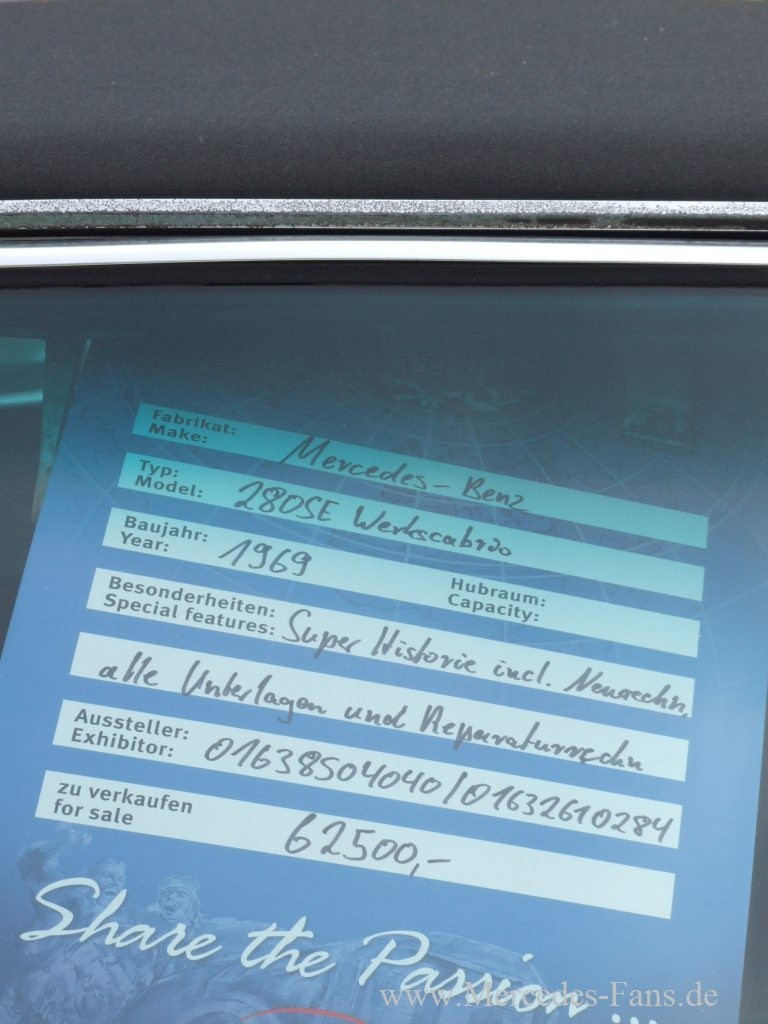 Fabrikat:
Make: Mercedes-Benz
Typ:
Model: 280SE Werkscabrio
Baujahr:
Year: 1969
Hubraum:
Capacity:
Besonderheiten:
Special features: Super Historie incl. Neurechn.
alle Unterlagen und Reparaturrechn
Aussteller:
Exhibitor: 01638504040/01632610284
zu verkaufen
for sale 62500,-
Share the Passion ...
www.Mercedes-Fans.de